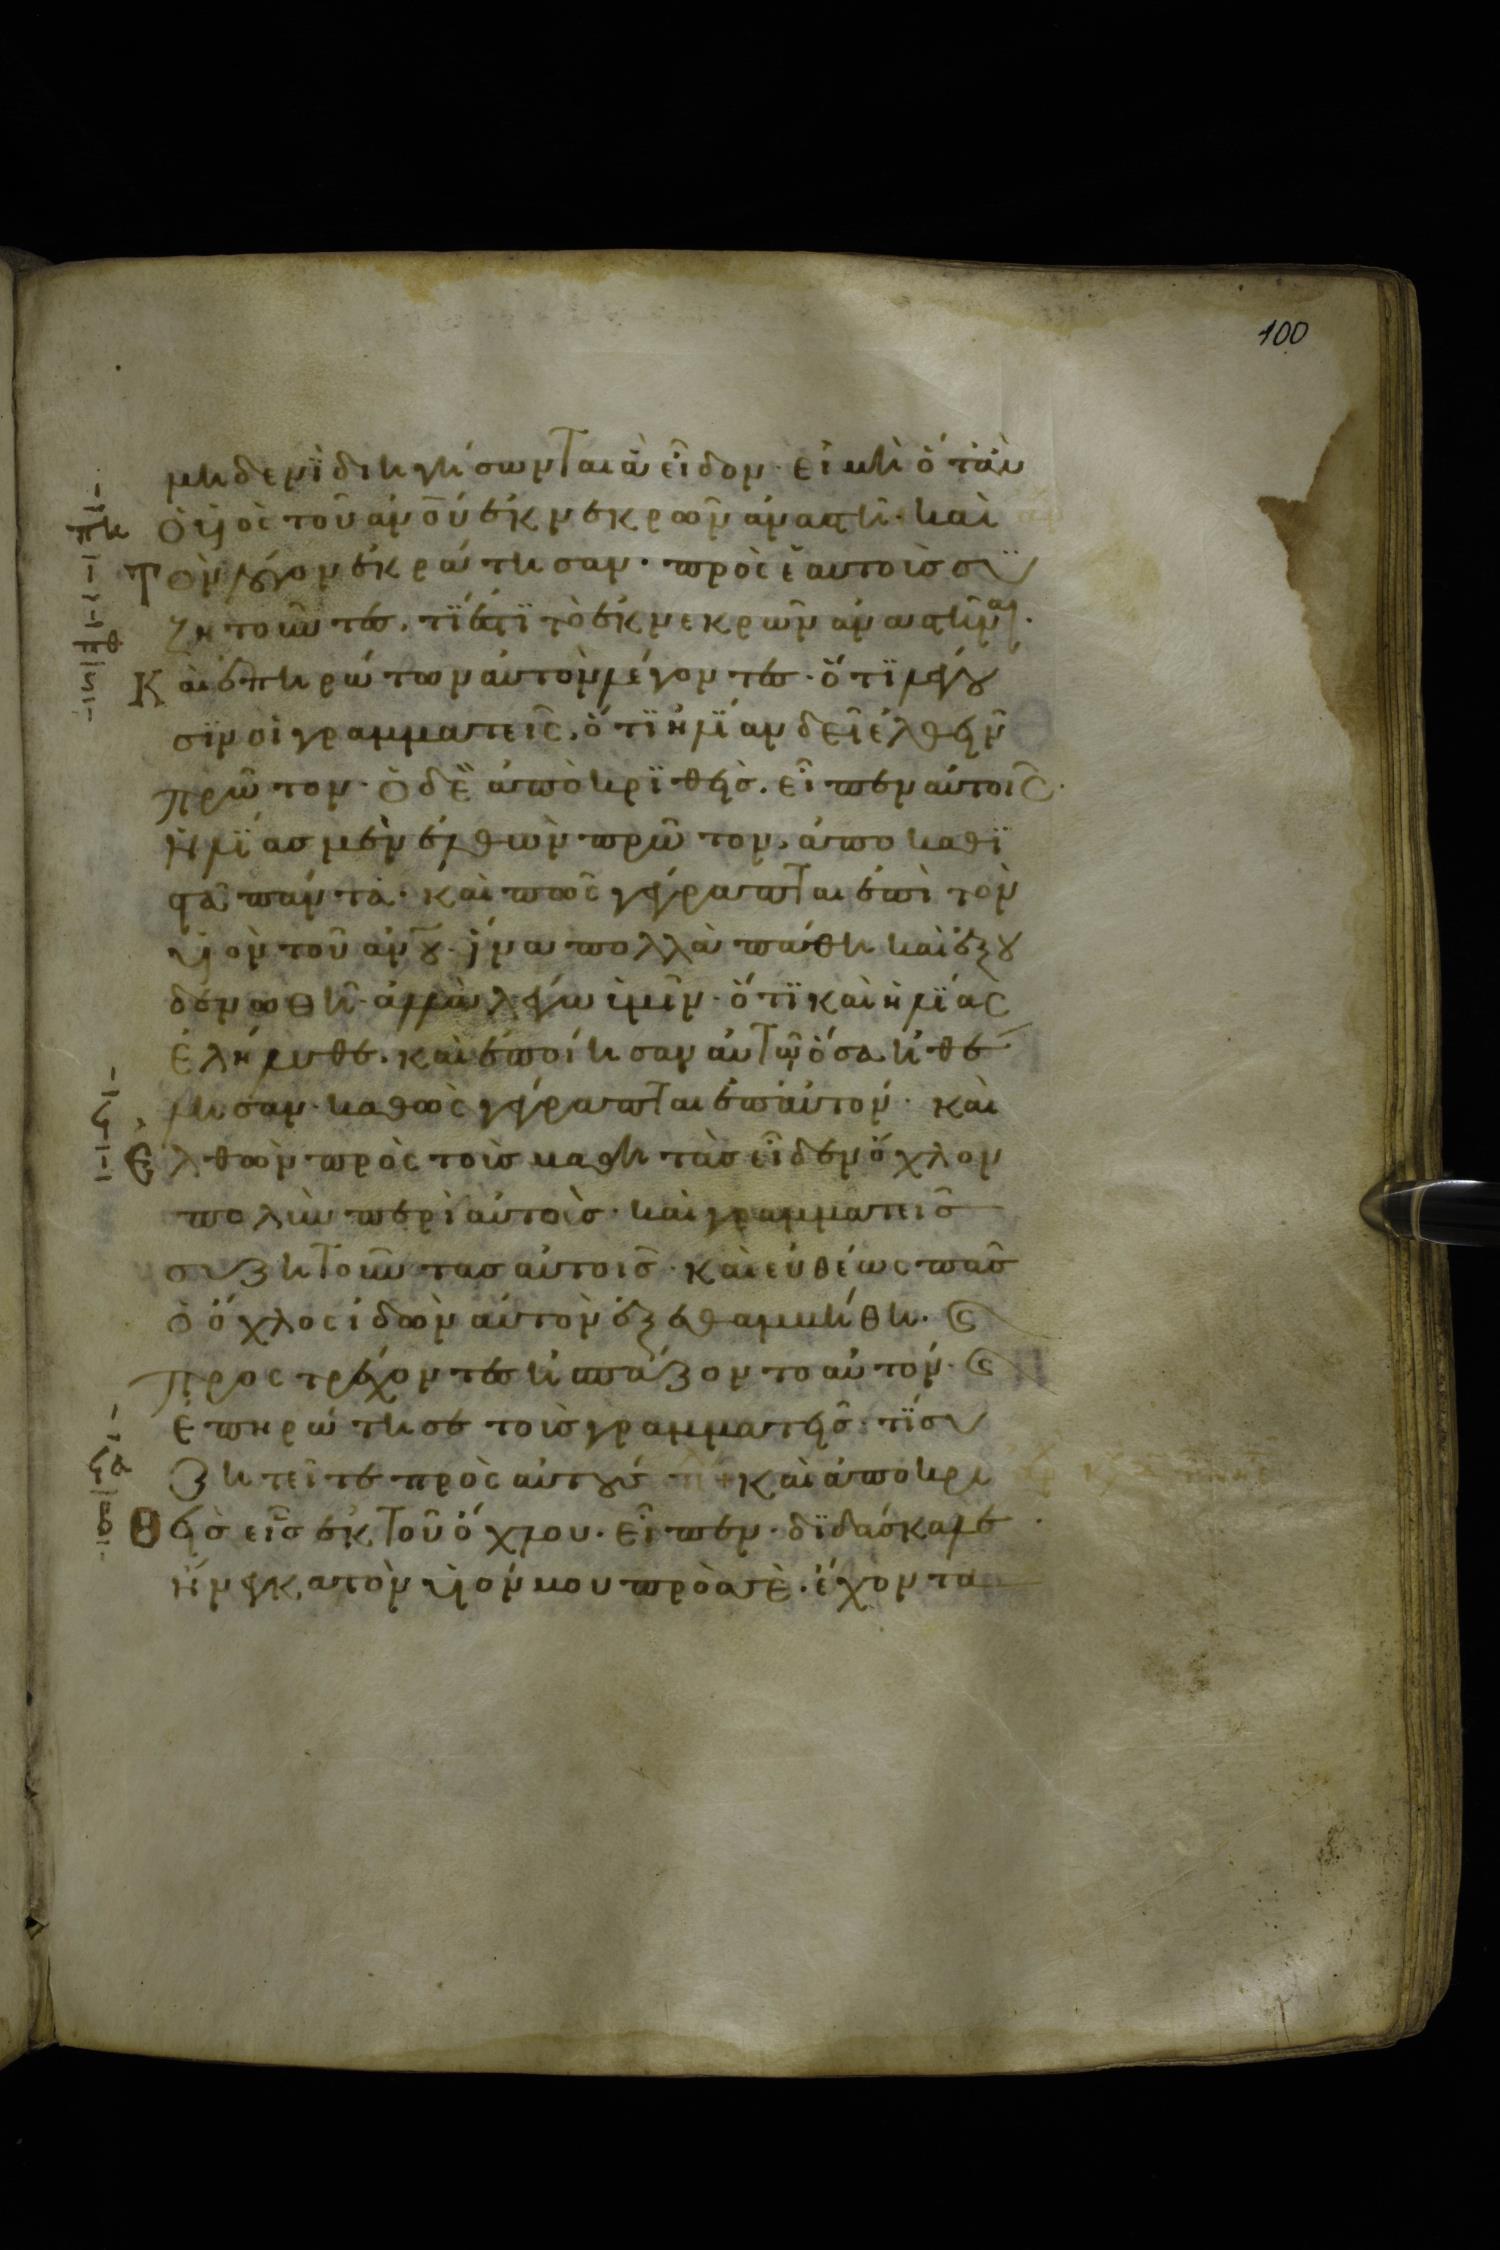 100
μηδενὶ διηγήσωνται ἃ εἶδον· εἰ μὴ ὅταν
ὁ υἱὸς τοῦ ἀνου ἐκ νεκρῶν ἀναστῆ· καὶ
τὸν λόγον ἐκράτησαν· πρὸς ἑαυτοὺς συ
ζητοῦντες, τί ἐστι τὸ ἐκ νεκρῶν ἀναστῆναι·
Καὶ ἐπηρώτων αὐτὸν λέγοντες· ὅτι λέγου
σιν οἱ γραμματεῖς, ὅτι ἠλίαν δεῖ ἐλθεῖν
πρῶτον· ὁ δὲ ἀποκριθεὶς, εἶπεν αὐτοῖς·
ἠλίας μὲν ἐλθὼν πρῶτον, ἀποκαθι
στᾶ πάντα· καὶ πῶς γέγραπται ἐπὶ τὸν
υἱὸν τοῦ ἀνου· ἵνα πολλὰ πάθη καὶ ἐξου
δενωθῆ· ἀλλὰ λέγω ὑμῖν· ὅτι καὶ ἠλίας
ἐλήλυθε· καὶ ἐποίησαν αὐτῶ ὅσα ἠθέ
λησαν· καθὼς γέγραπται ἐπ' αὐτόν· καὶ
Ἐλθὼν πρὸς τοὺς μαθητὰς εἶδεν ὄχλον
πολὺν περὶ αὐτοὺς· καὶ γραμματεῖς
συζητοῦντας αὐτοῖς· καὶ εὐθέως πᾶς
ὁ ὄχλος ἰδὼν αὐτὸν ἐξεθαμβήθη· ϛ
προστρέχοντες ἠσπάζοντο αὐτόν· ϛ
ἐπηρώτησε τοὺς γραμματεῖς· τί συ
ζητεῖτε πρὸς αὐτούς καὶ ἀποκρι
Θεὶς εἷς ἐκ τοῦ ὄχλου· εἶπεν· διδάσκαλε
ἤνεγκα τὸν υἱόν μου πρὸς σὲ· ἔχοντα